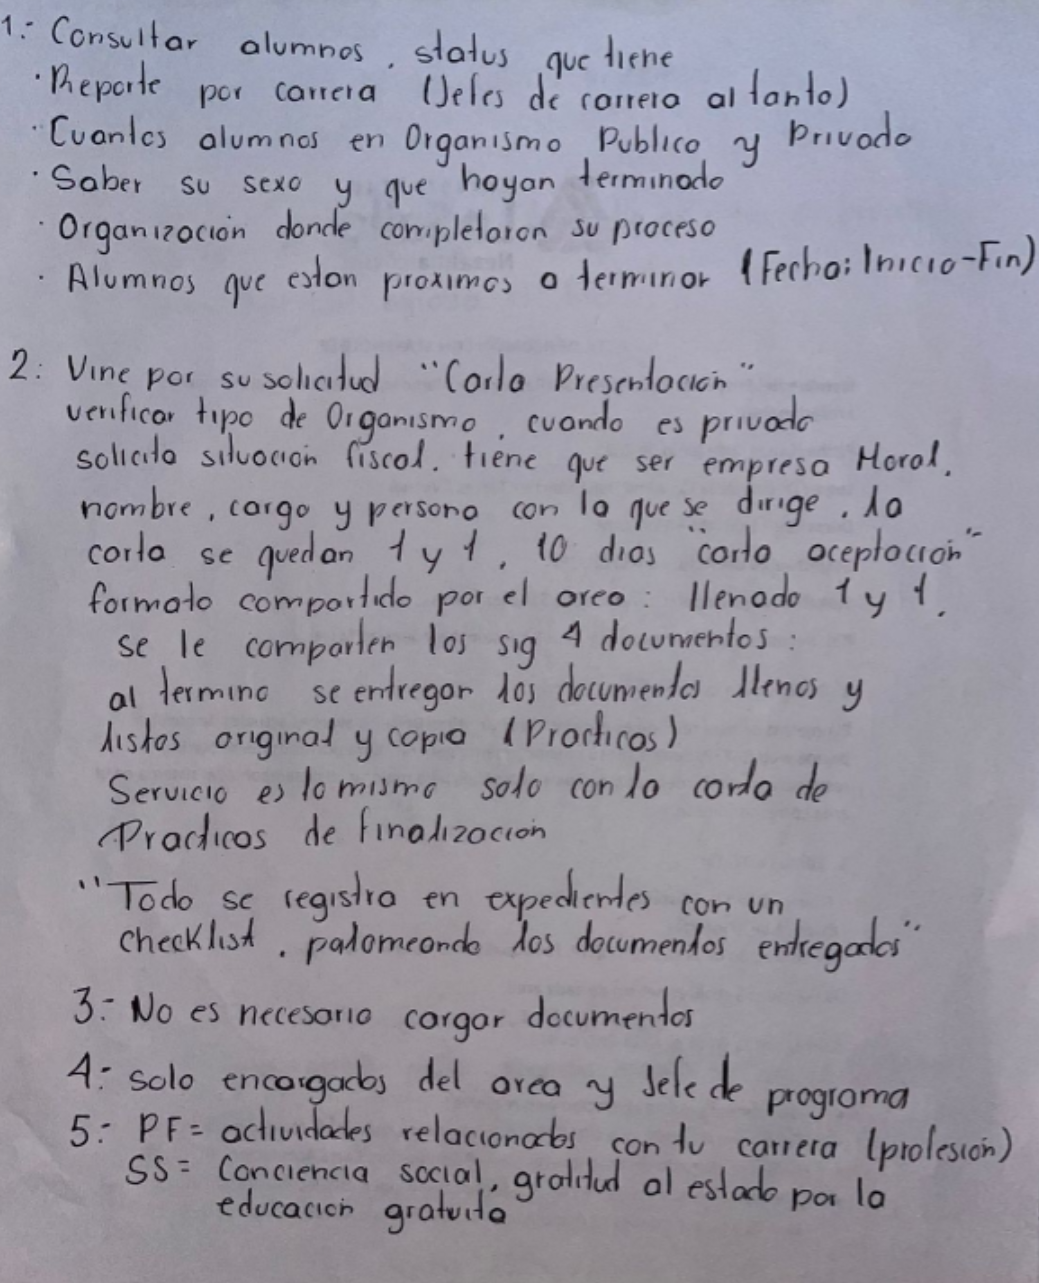 1.- Consultar alumnos, status que tiene
· Reporte por carrera (Jefes de carrera al tanto)
· Cuantos alumnos en Organismo Publico y Privado
· Saber su sexo y que hayan terminado
· Organización donde completaron su proceso
· Alumnos que estan proximos a terminar (Fecha: Inicio-Fin)
2: Vine por su solicitud "Carta Presentación"
verificar tipo de Organismo, cuando es privado
solicita situación fiscal. tiene que ser empresa Moral.
nombre, cargo y persona con la que se dirige, la
carta se quedan 1 y 1, 10 dias "carta aceptación"
formato compartido por el area: llenado 1 y 1.
se le comparten los sig 4 documentos:
al termino se entregan los documentos llenos y
listos original y copia (Practicas)
Servicio es lo mismo solo con la carta de
Practicas de finalización
"Todo se registra en expedientes con un
checklist, palomeando los documentos entregados"
3.- No es necesario cargar documentos
4.- solo encargados del area y Jefe de programa
5.- PF= actividades relacionadas con tu carrera (profesión)
SS= Conciencia social, gratitud al estado por la
educación gratuita